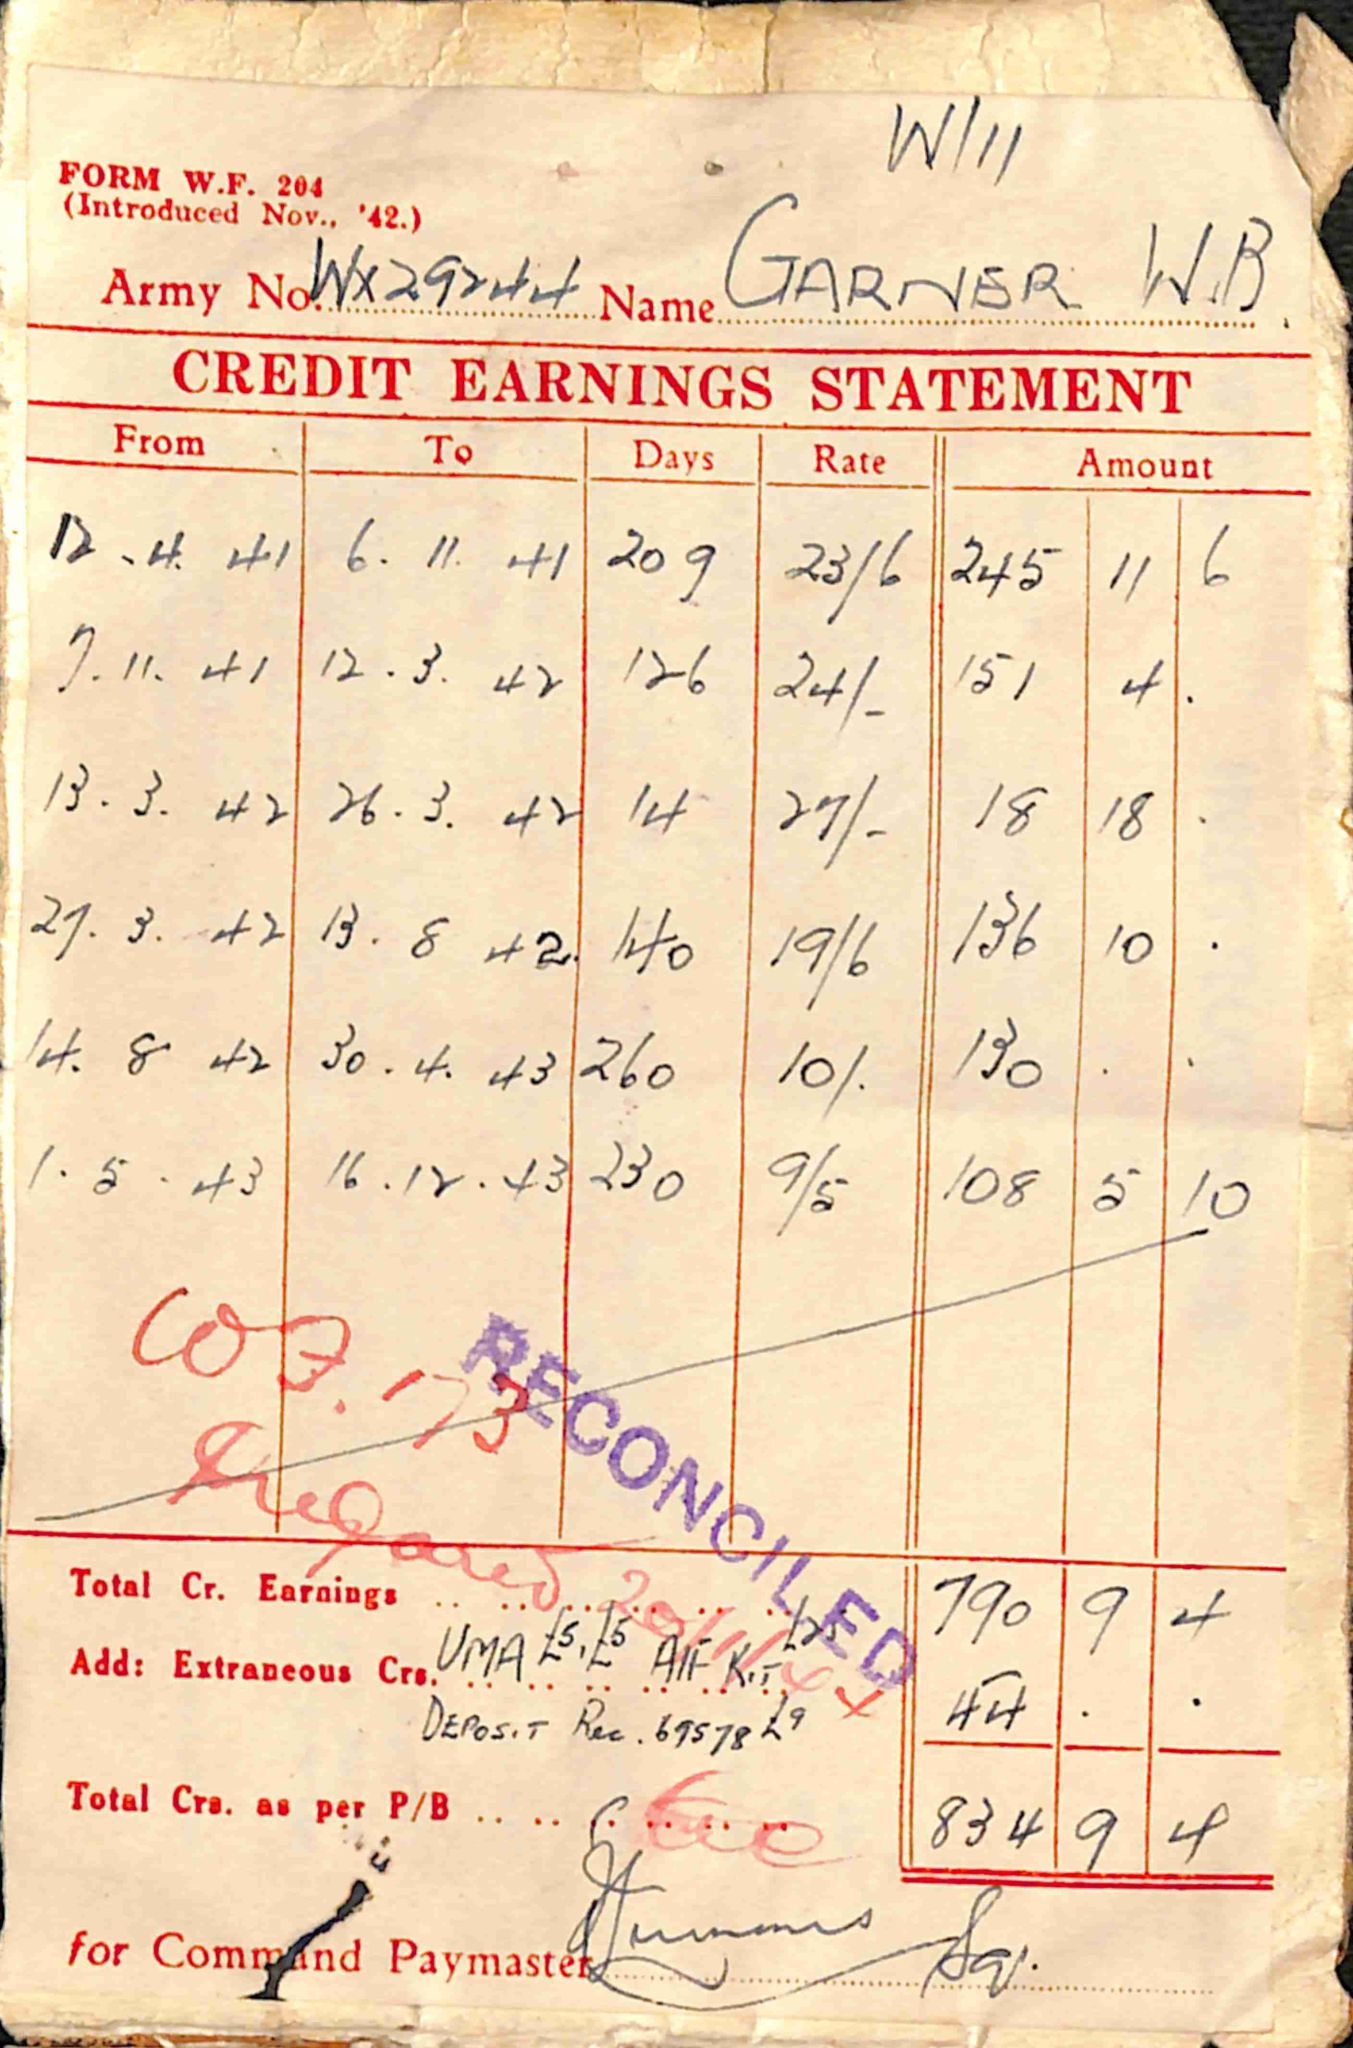 W/11
FORM W.F. 204
(Introduced Nov., '42.)
Army No. WX29244 Name GARNER W.B
CREDIT EARNINGS STATEMENT
From To Days Rate Amount
12 . 4. 41 6. 11. 41 209 23/6 245 11 6
7. 11. 41 12. 3. 42 126 24/- 151 4 .
13. 3. 42 26. 3. 42 14 27/- 18 18 .
27. 3. 42 13. 8 42. 140 19/6 136 10 .
14. 8 42 30. 4. 43 260 10/. 130 . .
1. 5. 43 16. 12. 43 230 9/5 108 5 10
173
RECONCILED
Total Cr. Earnings .. .. .. .. .. .. 790 9 4
UMA £5, £5 AIF KIT £25
Add: Extraneous Crs. .. .. .. .. .. 44 . .
DEPOSIT Rec. 69578 £9
Total Crs. as per P/B .. .. .. .. .. 834 9 4
for Command Paymaster